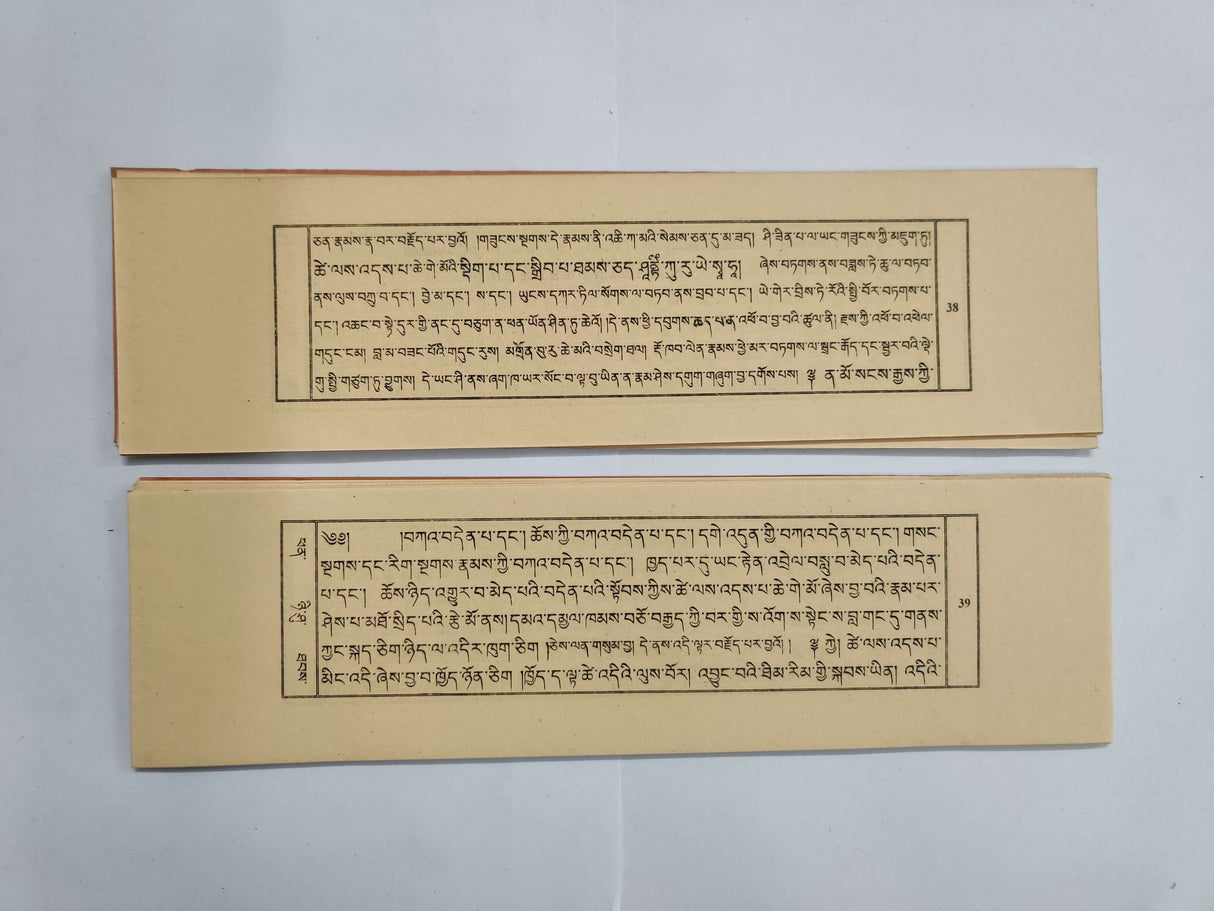 ཅན་རྣམས་རྣ་བར་བརྗོད་པར་བྱའོ། །གཟུངས་སྔགས་དེ་རྣམས་ནི་འཆི་ཀ་མའི་སེམས་ཅན་དུ་མ་ཟད། ཤི་ཟིན་པ་ལ་ཡང་གཟུངས་ཀྱི་མདྲུག་ཏུ།
ཚེ་ལས་འདས་པ་ཆེ་གེ་མོའི་སྡིག་པ་དང་སྒྲིབ་པ་ཐམས་ཅད་ ཀུ་རུ་ཡེ་སྭཱ་ཧཱ། ཞེས་བཏགས་ནས་བཟླས་ཏེ་ཆུ་ལ་བཏབ་
ནས་ལུས་བཀྲུ་བ་དང་། བྱེ་མ་དང་། ས་དང་། ཡུངས་དཀར་ཏིལ་སོགས་ལ་བཏབ་ནས་བྲབ་པ་དང་། ཡི་གེར་བྲིས་ཏེ་རོའི་སྤྱི་བོར་བཏགས་པ་
དང་། འཆང་བ་སྟེ་དུར་གྱི་ནང་དུ་བཅུག་ན་ཕན་ཡོན་ཤིན་ཏུ་ཆེའོ། །དེ་ནས་ཕྱི་དབུགས་ཆད་པ་ན་འཕོ་བ་བྱ་བའི་ཚུལ་ནི། རྫས་ཀྱི་འཕོ་བ་འཕེལ་
གདུང་ངམ། བླ་མ་བཟང་པོའི་གདུང་རུས། མགྲོན་བུ་རུ་ཆེ་མའི་བསྲེག་ཐལ། རྡོ་ཁབ་ལེན་རྣམས་ཕྱེ་མར་བཏགས་ལ་སྦྲང་རྒོད་དང་སྦྱར་བའི་ལྡེ་
གུ་སྤྱི་གཙུག་ཏུ་བྱུགས། དེ་ཡང་ཤི་ནས་ཞག་ཁ་ཡར་སོང་བ་ལྟ་བུ་ཡིན་ན་རྣམ་ཤེས་དགུག་གཞུག་བྱ་དགོས་པས། ༈ ན་མོ་སངས་རྒྱས་ཀྱི་
38
༄༅། །བཀའ་བདེན་པ་དང་། ཆོས་ཀྱི་བཀའ་བདེན་པ་དང་། དགེ་འདུན་གྱི་བཀའ་བདེན་པ་དང་། གསང་
སྔགས་དང་རིག་སྔགས་རྣམས་ཀྱི་བཀའ་བདེན་པ་དང་། ཁྱད་པར་དུ་ཡང་རྟེན་འབྲེལ་བསླུ་བ་མེད་པའི་བདེན་
པ་དང་། ཆོས་ཉིད་འགྱུར་བ་མེད་པའི་བདེན་པའི་སྟོབས་ཀྱིས་ཚེ་ལས་འདས་པ་ཆེ་གེ་མོ་ཞེས་བྱ་བའི་རྣམ་པར་
ཤེས་པ་མཐོ་སྲིད་པའི་རྩེ་མོ་ནས། དམའ་དམྱལ་ཁམས་བཅོ་བརྒྱད་ཀྱི་བར་གྱི་ས་འོག་ས་སྟེང་ས་བླ་གང་དུ་གནས་
ཀྱང་སྐད་ཅིག་ཉིད་ལ་འདིར་ཁུག་ཅིག །ཅེས་ལན་གསུམ་བྱ། དེ་ནས་འདི་ལྟར་བརྗོད་པར་བྱའོ། ། ༈ ཀྱེ། ཚེ་ལས་འདས་པ་
མིང་འདི་ཞེས་བྱ་བ་ཁྱོད་ཉོན་ཅིག །ཁྱོད་ད་ལྟ་ཚེ་འདིའི་ལུས་བོར། འབྱུང་བའི་ཐིམ་རིམ་གྱི་སྐབས་ཡིན། འདིའི་
39